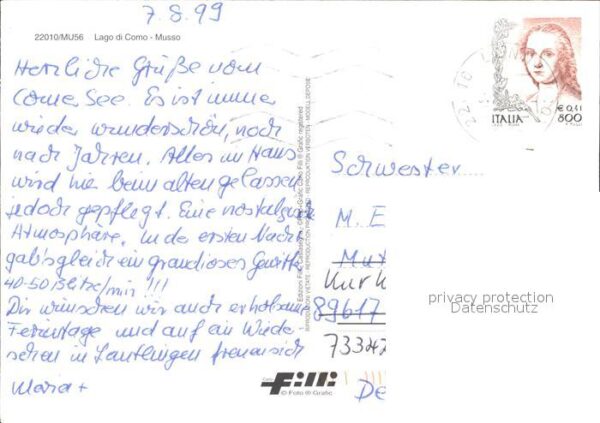 7.8.99
22010/MU56 Lago di Como - Musso
Herzliche Grüße vom
Comer See. Es ist immer
wieder wunderschön, noch
nach Jahren. Alles im Haus
wird hier beim alten gelassen
jedoch gepflegt. Eine nostalgische
Atmosphäre. In der ersten Nacht
gab's gleich ein grandioses Gewitter
40-50 Blitze/min !!!
Dir wünschen wir auch erholsame
Ferientage und auf ein Wieder-
sehen in Lautlingen freuen sich
Maria +
REPRODUCTION VERBOTEN - MODELE DEPOSE
Filli
© Foto @ Grafic
ITALIA
€ 0,41
800
Schwester
M. E
Mut
Kurk
89617
73342
De
privacy protection
Datenschutz